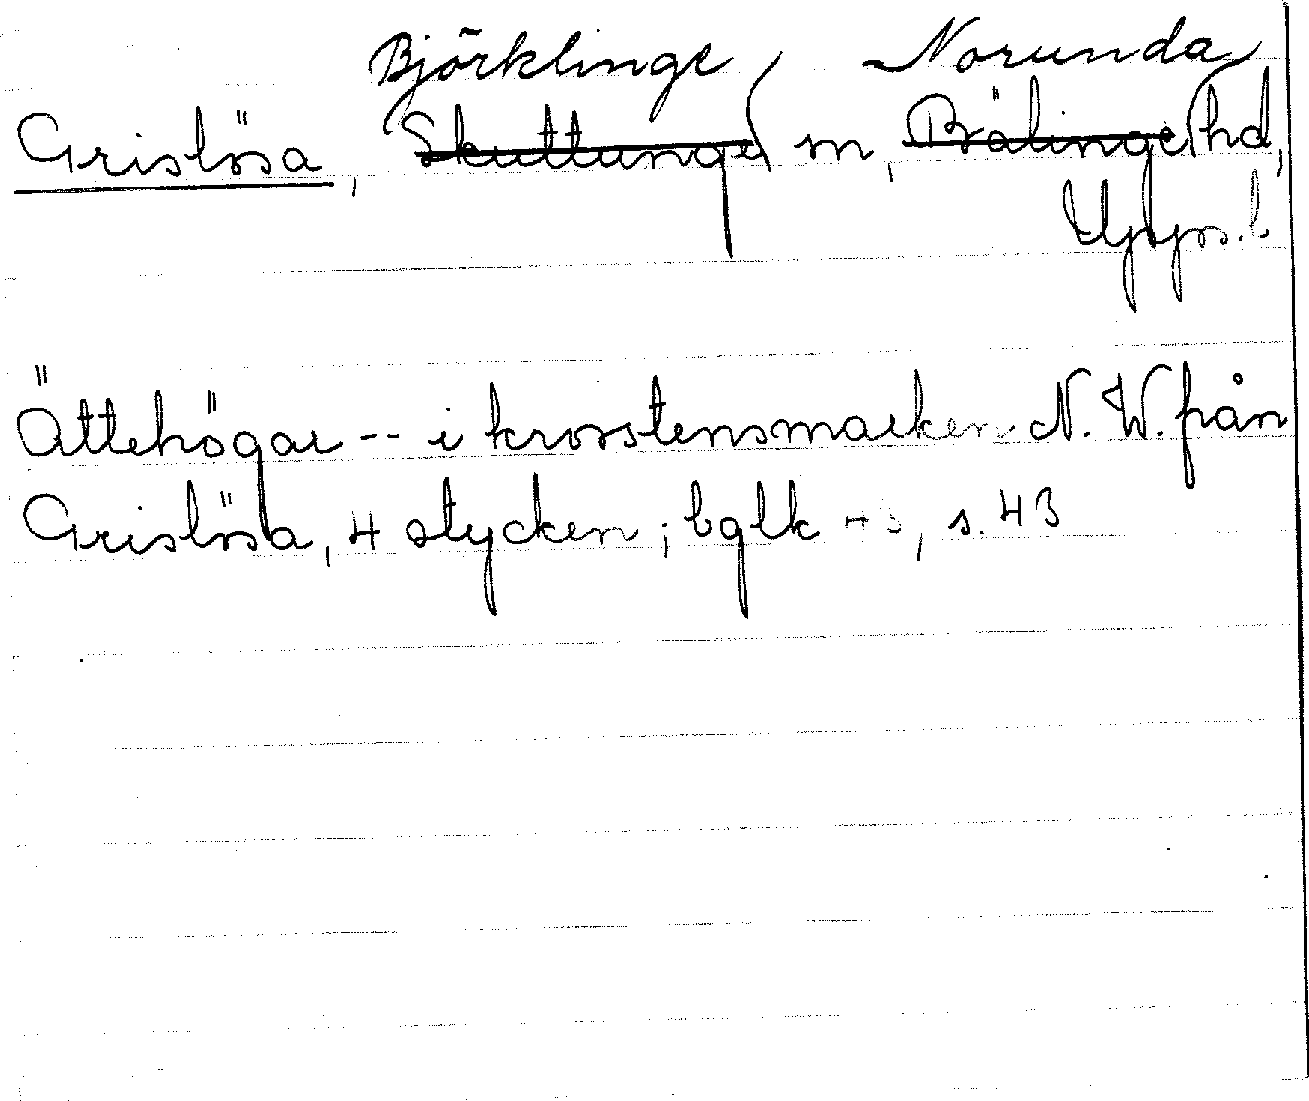 Björklinge Norunda
Grislösa, Skuttunge sn, Bälinge hd,
Upps. l
Ättehögar -- i krosstensmarken N.W. från
Grislösa, 4 stycken; bglk 43, s. 43